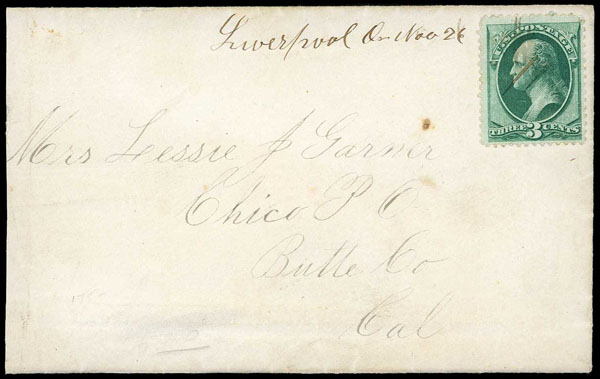 Liverpool Or Nov 26
U.S. POSTAGE
THREE 3 CENTS
Mrs Lessie J Garner
Chico P O
Butte Co
Cal